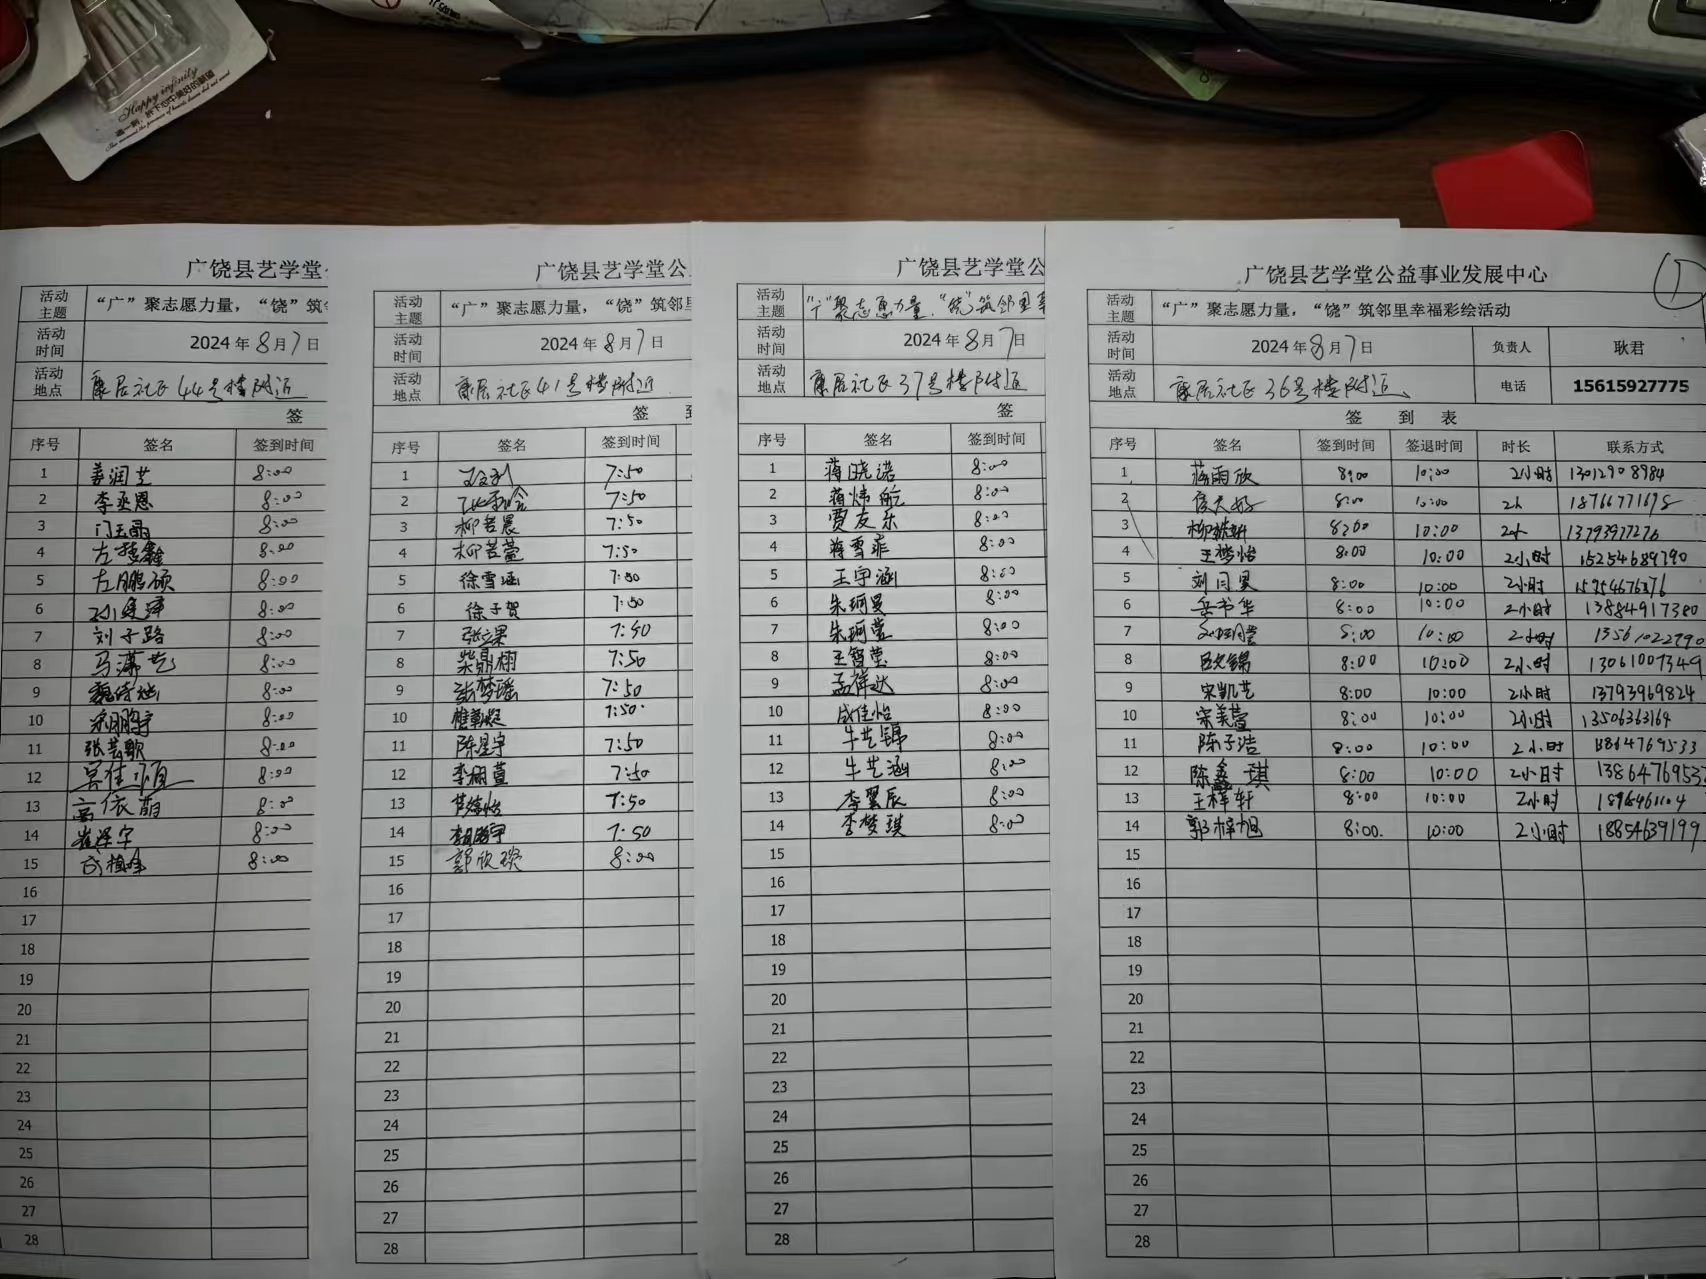 Happy infinity
广饶县艺学堂
活动主题 “广”聚志愿力量，“饶”筑
活动时间 2024年8月7日
活动地点 康居社区44号楼附近
签
序号 签名 签到时间
1 姜润芝 8:00
2 李丞恩 8:00
3 8:00
4 左 鑫 8:00
5 左鹏硕 8:00
6 8:00
7 刘子路 8:00
8 马 艺 8:00
9 8:00
10 8:00
11 张艺歌 8:00
12 8:00
13 高依萌 8:00
14 崔泽宇 8:00
15 8:00
16
17
18
19
20
21
22
23
24
25
26
27
28
广饶县艺学堂公
活动主题 “广”聚志愿力量，“饶”筑邻
活动时间 2024年8月7日
活动地点 康居社区41号楼附近
签 到
序号 签名 签到时间
1 7:50
2 7:50
3 柳若晨 7:50
4 柳若萱 7:50
5 徐雪涵 7:50
6 徐子贺 7:50
7 7:50
8 柴鼎栩 7:50
9 张梦瑶 7:50
10 7:50
11 陈星宇 7:50
12 李栩萱 7:50
13 7:50
14 7:50
15 郭欣琰 8:00
16
17
18
19
20
21
22
23
24
25
26
27
28
广饶县艺学堂公
活动主题 “广”聚志愿力量，“饶”筑邻里幸
活动时间 2024年8月7日
活动地点 康居社区37号楼附近
签
序号 签名 签到时间
1 蒋晓诺 8:00
2 蒋炜航 8:00
3 贾友乐 8:00
4 蒋雪菲 8:00
5 王宇涵 8:00
6 朱珂旻 8:00
7 朱珂萱 8:00
8 王智莹 8:00
9 孟祥达 8:00
10 成佳怡 8:00
11 牛艺锦 8:00
12 牛艺涵 8:00
13 李翼辰 8:00
14 李梦琪 8:00
15
16
17
18
19
20
21
22
23
24
25
26
27
28
①
广饶县艺学堂公益事业发展中心
活动主题 “广”聚志愿力量，“饶”筑邻里幸福彩绘活动
活动时间 2024年8月7日 负责人 耿君
活动地点 康居社区36号楼附近 电话 15615927775
签 到 表
序号 签名 签到时间 签退时间 时长 联系方式
1 蒋雨欣 8:00 10:00 2小时 13012908984
2 8:00 10:00 2h 18766771698
3 8:00 10:00 2h 13793977276
4 王梦怡 8:00 10:00 2小时 15254689790
5 8:00 10:00 2小时 15954676376
6 岳书华 8:00 10:00 2小时 13884917380
7 8:00 10:00 2小时 13561022790
8 8:00 10:00 2小时 13061007349
9 宋凯艺 8:00 10:00 2小时 13793969824
10 宋美萱 8:00 10:00 2小时 13506363164
11 陈子浩 8:00 10:00 2小时 13864769533
12 陈鑫琪 8:00 10:00 2小时 1386476953
13 王梓轩 8:00 10:00 2小时
14 郭梓旭 8:00 10:00 2小时 18854639199
15
16
17
18
19
20
21
22
23
24
25
26
27
28